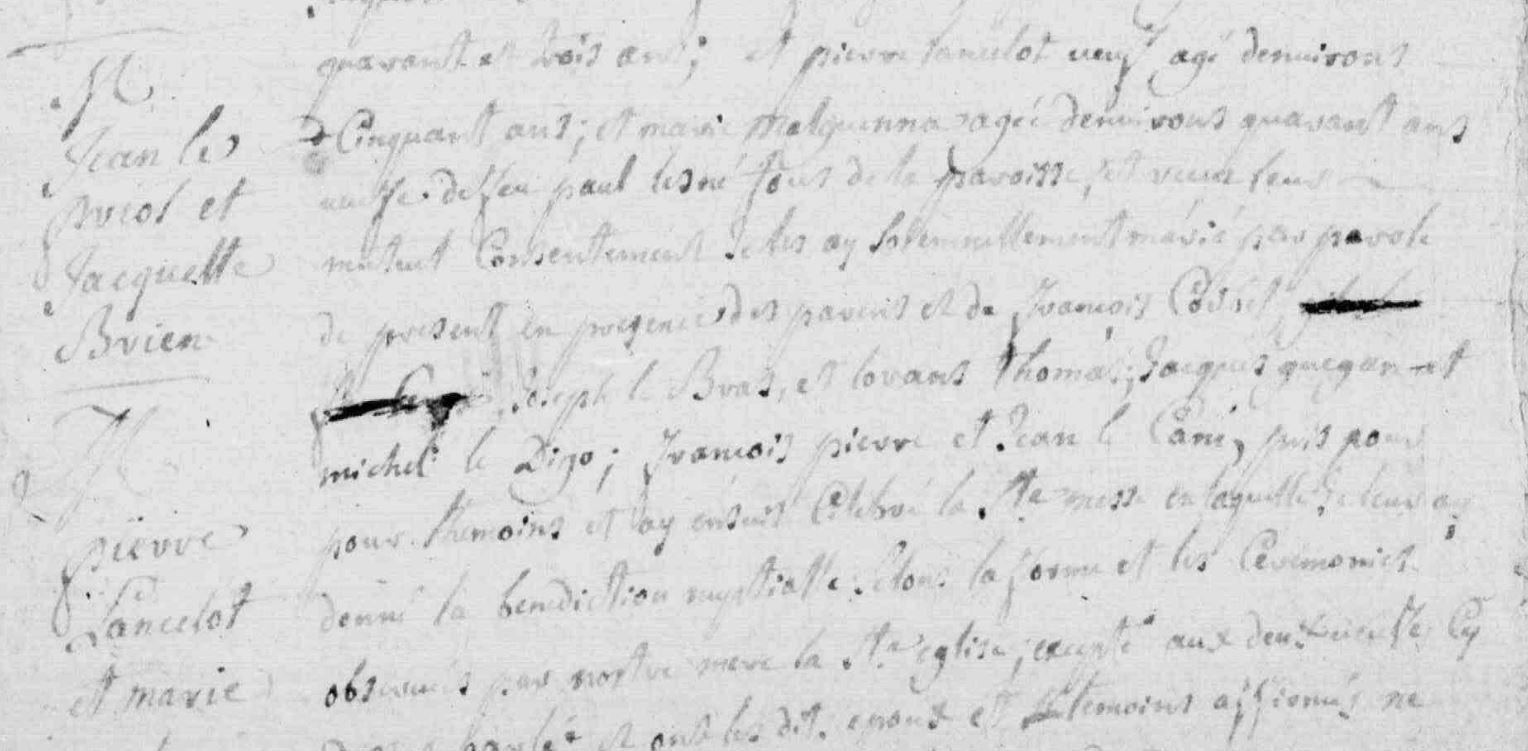 M
Jean le
priol et
Jacquette
Brien
M
pierre
Lancelot
et marie
quarant et trois ans; et pierre lancelot veuf agé denvirons
Cinquant ans; et marie malquenna agée denvirons quarant ans
veufve de feu paul lesné tous de la paroisse, et veüe leur
mutuel Consentement Je les ay solemnellement marié par parole
de present en presence des parens et de francois Cosnet
Joseph le Bras, et lorans thomas; Jacques guegan et
michel le Digo; francois pierre et Jean le Cam, pris pour
pour themoins et ay ensuit Celebré la Ste messe en laquelle Je leur ay
donné la benediction nuptialle selons la forme et les Ceremonies
observées par nostre mere la Ste eglise, excepté aux deux veufs Cy
parlé et ont les dit. epoux et temoins affirmés ne